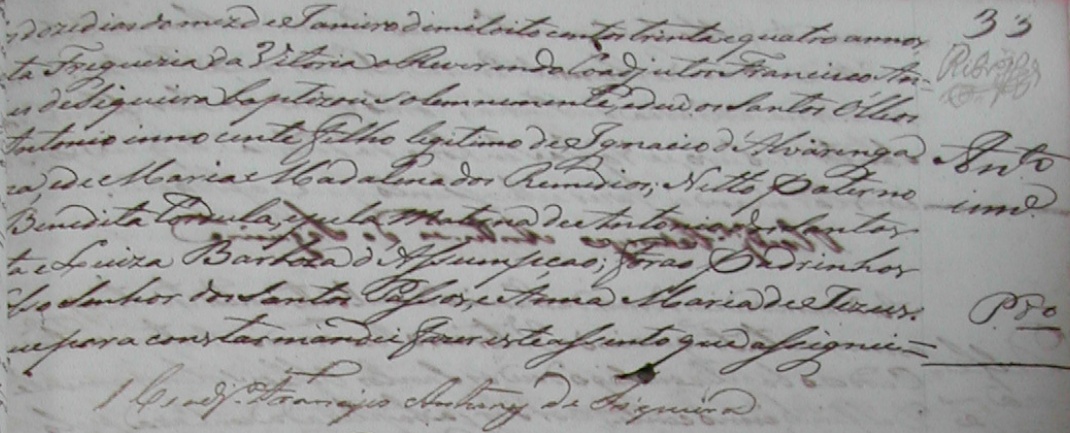 33
s doze dias do mez de Janiero de mil oito centos trinta e quatro annos
ta Freguezia da Vitoria o Reverendo Coadjutor Francisco An=
es de Siqueira baptizou solemnemente, e deu os Santos Olleos
Antonio innocente filho legitimo de Ignacio d'Alvarenga
Anto
e de Maria Madalena dos Remedios; Netto Paterno
inno
Benedita, e pela Materna de Antonio dos Santos
e Luiza Barboza d'Assumpcao; forao Padrinhos
Senhor dos Santos Passos, e Anna Maria de Jezus.
Pdo
ue para constar mandei fazer este assento que assignei=
Coadj. Francisco Antunes de Siqueira